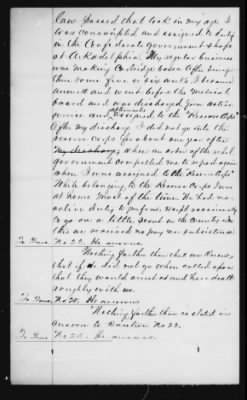 law passed that took in my age I
was conscripted and assigned to duty
in the Confederate government shops
at Arkadelphia. My regular business
was making Cartridge boxes. After being
there some five or six months I became
unwell and went before the medical
board and was discharged from active
service and afterwards assigned to the "Reserve Corps"
After my discharge I did not go into the
reserve corps for about one year after
My discharge, when an order of the rebel
government compelled me to report again
when I was assigned to the Reserve Corps
While belonging to the Reserve Corps I was
at home most of the time. We had no
active duty to perform, except occasionally
to go on a little scout in the County. In
this we received no pay nor subsistence
To Ques. No 22. He answers
Nothing further than that we knew
that if we did not go when called upon
that they would arrest us and then dealt
roughly with us.
To Ques. No 23. He answers
Nothing further than is stated in
answer to Question No 22.
To Ques No 25. He answers.